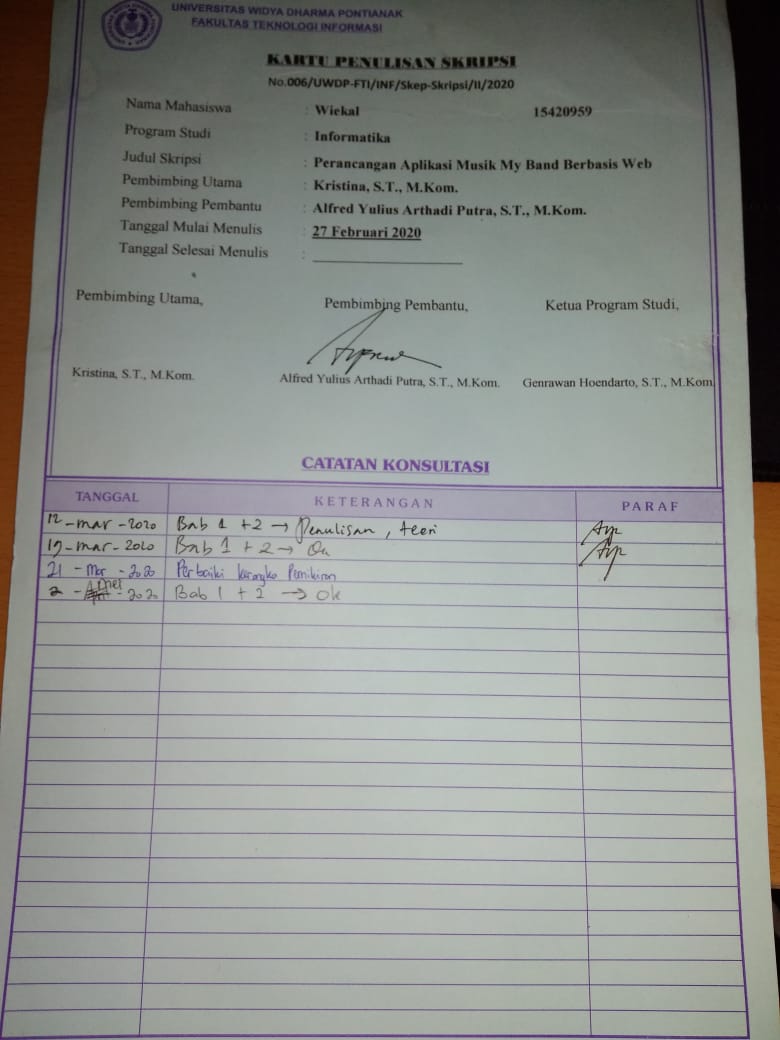 UNIVERSITAS WIDYA DHARMA PONTIANAK
FAKULTAS TEKNOLOGI INFORMASI
KARTU PENULISAN SKRIPSI
No.006/UWDP-FTI/INF/Skep-Skripsi/II/2020
Nama Mahasiswa : Wiekal 15420959
Program Studi : Informatika
Judul Skripsi : Perancangan Aplikasi Musik My Band Berbasis Web
Pembimbing Utama : Kristina, S.T., M.Kom.
Pembimbing Pembantu : Alfred Yulius Arthadi Putra, S.T., M.Kom.
Tanggal Mulai Menulis : 27 Februari 2020
Tanggal Selesai Menulis :
Pembimbing Utama, Pembimbing Pembantu, Ketua Program Studi,
Kristina, S.T., M.Kom. Alfred Yulius Arthadi Putra, S.T., M.Kom. Genrawan Hoendarto, S.T., M.Kom
CATATAN KONSULTASI
TANGGAL KETERANGAN PARAF
12-mar-2020 Bab 1 + 2 → Penulisan, teori
19-mar-2020 Bab 1 + 2 →
21 - Mar - 2020 Perbaiki kerangka Pemikiran
2 - April - 2020 Bab 1 + 2 → Ok